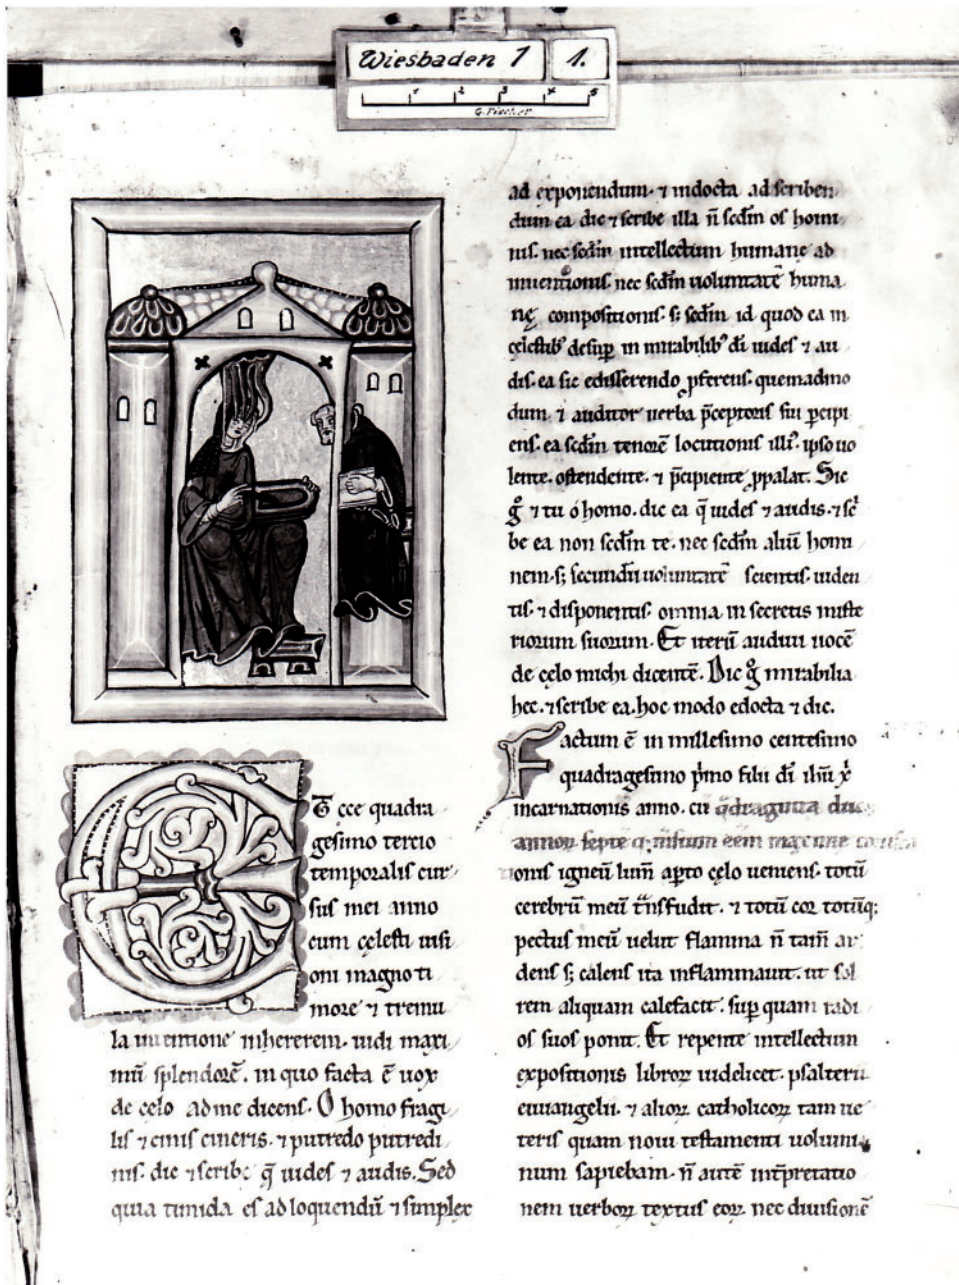 Wiesbaden 1 1.
1 2 3 4 5
G. Fischer
Et ecce quadra
gesimo tercio
temporalis cur
sus mei anno
cum cęlesti uisi
oni magno ti
more ⁊ tremu
la intentione inhererem. uidi maxi
mū splendorē. in quo facta ē uox
de cęlo ad me dicens. O homo fragi
lis ⁊ cinis cineris. ⁊ putredo putredi
nis. dic ⁊ scribe q̄ uides ⁊ audis. Sed
quia timida es ad loquendū ⁊ simplex
ad exponendum. ⁊ indocta ad scriben
dum ea dic ⁊ scribe illa n̄ scdm̄ os homi
nis. nec scdm̄ intellectum humanę ad
inuentionis. nec scdm̄ uoluntatē huma
nę compositionis. s; scdm̄ id quod ea in
cęlestib' desup in mirabilib' dī uides ⁊ au
dis. ea sic edisserendo pferens. quemadmo
dum ⁊ auditor uerba p̄ceptoris sui pcipi
ens. ea scdm̄ tenorē locutionis illi'. ipso uo
lente. ostendente. ⁊ p̄cipiente ppalat. Sic
gͦ ⁊ tu o homo. dic ea q̄ uides ⁊ audis. ⁊ sc̄
be ea non scdm̄ te. nec scdm̄ aliū homi
nem. s; secundū uoluntatē scientis. uiden
tis. ⁊ disponentis omnia in secretis miste
riorum suorum. Et iterū audiui uocē
de cęlo michi dicentē. Dic gͦ mirabilia
hec. ⁊ scribe ea. hoc modo edocta ⁊ dic.
Factum ē in millesimo centesimo
quadragesimo p̍mo filii dī ih̄u x̄
incarnationis anno. cū q̄draginta duo
annoꝝ septē q; msium eēm maxime corusca
tionis igneū lum̄ apto cęlo ueniens. totū
cerebrū meū tͣnsfudit. ⁊ totū cor totūq;
pectus meū uelut flamma n̄ tam̄ ar
dens s; calens ita inflammauit. ut sol
rem aliquam calefacit. sup quam radi
os suos ponit. Et repente intellectum
expositionis libroꝝ uidelicet. psalterii
euuangelii. ⁊ alioꝝ catholicoꝝ tam ue
teris quam noui testamenti uolumi
num sapiebam. n̄ autē int̄pretatio
nem uerboꝝ textus eoꝝ. nec diuisionē